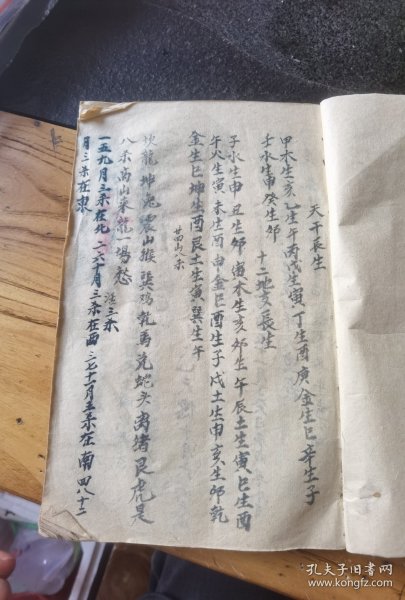 天干長生
甲木生亥 乙生午 丙戊生寅 丁生酉 庚金生巳 辛生子
壬水生申 癸生卯
十二地支長生
子水生申 丑生卯 寅木生亥 卯生午 辰土生寅 巳生酉
午火生寅 未生酉 申金巳 酉生子 戌土生申 亥生卯 乾
金生巳 坤生酉 艮土生寅 巽生午
廿四山八杀
坎龍坤兔震山猴 巽鸡乾馬兑蛇头 离猪艮虎是
八杀 高山来龍一場愁
注三杀
一五九月三杀在北 二六十月三杀在西 三七十一月三杀在南 四八十二
月三杀在東
孔夫子旧书网
book.kongfz.com